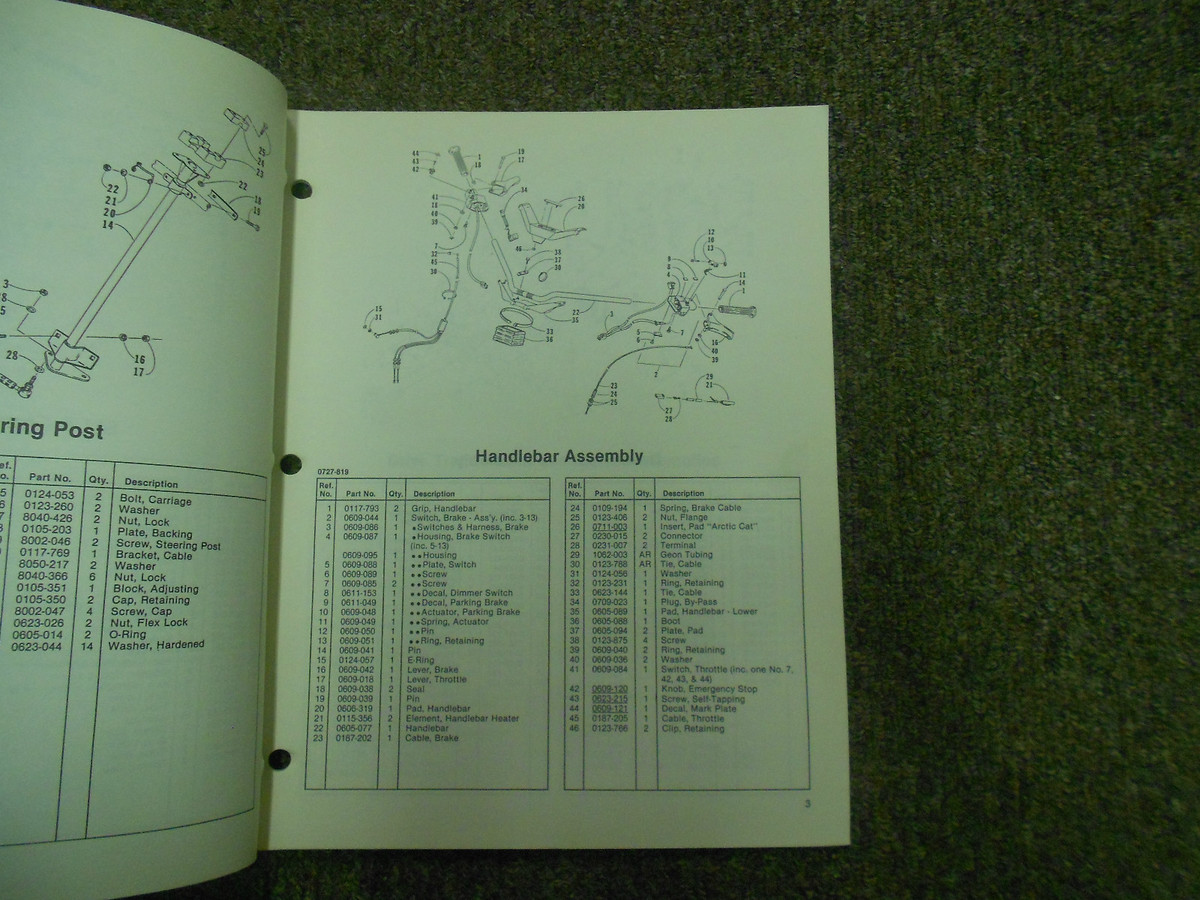 25
24
23
22
22
21
20
14
18
19
3
28
16
17
ring Post
ef. Part No. Qty. Description
o.
5 0124-053 2 Bolt, Carriage
6 0123-260 2 Washer
7 8040-426 2 Nut, Lock
8 0105-203 1 Plate, Backing
9 8002-046 2 Screw, Steering Post
0117-769 1 Bracket, Cable
8050-217 2 Washer
8040-366 6 Nut, Lock
0105-351 1 Block, Adjusting
0105-350 2 Cap, Retaining
8002-047 4 Screw, Cap
0623-026 2 Nut, Flex Lock
0605-014 2 O-Ring
0623-044 14 Washer, Hardened
44
43
42
1
18
19
17
34
26
20
41
18
40
39
7
32
45
30
46
38
37
30
15
31
22
35
33
36
12
10
13
9
8
4
11
14
1
3
5
6
7
16
40
39
2
23
24
25
29
21
27
28
Handlebar Assembly
0727-819
Ref. No. Part No. Qty. Description
1 0117-793 2 Grip, Handlebar
2 0609-044 1 Switch, Brake - Ass'y. (inc. 3-13)
3 0609-086 1 •Switches & Harness, Brake
4 0609-087 1 •Housing, Brake Switch
(inc. 5-13)
0609-095 1 ••Housing
5 0609-088 1 ••Plate, Switch
6 0609-089 1 ••Screw
7 0609-085 2 ••Screw
8 0611-153 1 ••Decal, Dimmer Switch
9 0611-049 1 ••Decal, Parking Brake
10 0609-048 1 ••Actuator, Parking Brake
11 0609-049 1 ••Spring, Actuator
12 0609-050 1 ••Pin
13 0609-051 1 ••Ring, Retaining
14 0609-041 1 Pin
15 0124-057 1 E-Ring
16 0609-042 1 Lever, Brake
17 0609-018 1 Lever, Throttle
18 0609-038 2 Seal
19 0609-039 1 Pin
20 0605-319 1 Pad, Handlebar
21 0115-356 2 Element, Handlebar Heater
22 0605-077 1 Handlebar
23 0187-202 1 Cable, Brake
Ref. No. Part No. Qty. Description
24 0109-194 1 Spring, Brake Cable
25 0123-406 2 Nut, Flange
26 0711-003 1 Insert, Pad "Arctic Cat"
27 0230-015 2 Connector
28 0231-007 2 Terminal
29 1062-003 AR Geon Tubing
30 0123-788 AR Tie, Cable
31 0124-056 1 Washer
32 0123-231 1 Ring, Retaining
33 0623-144 1 Tie, Cable
34 0709-023 1 Plug, By-Pass
35 0605-089 1 Pad, Handlebar - Lower
36 0605-088 1 Boot
37 0605-094 2 Plate, Pad
38 0123-875 4 Screw
39 0609-040 2 Ring, Retaining
40 0609-036 2 Washer
41 0609-084 1 Switch, Throttle (inc. one No. 7,
42, 43, & 44)
42 0609-120 1 Knob, Emergency Stop
43 0623-215 1 Screw, Self-Tapping
44 0609-121 1 Decal, Mark Plate
45 0187-205 1 Cable, Throttle
46 0123-766 2 Clip, Retaining
3